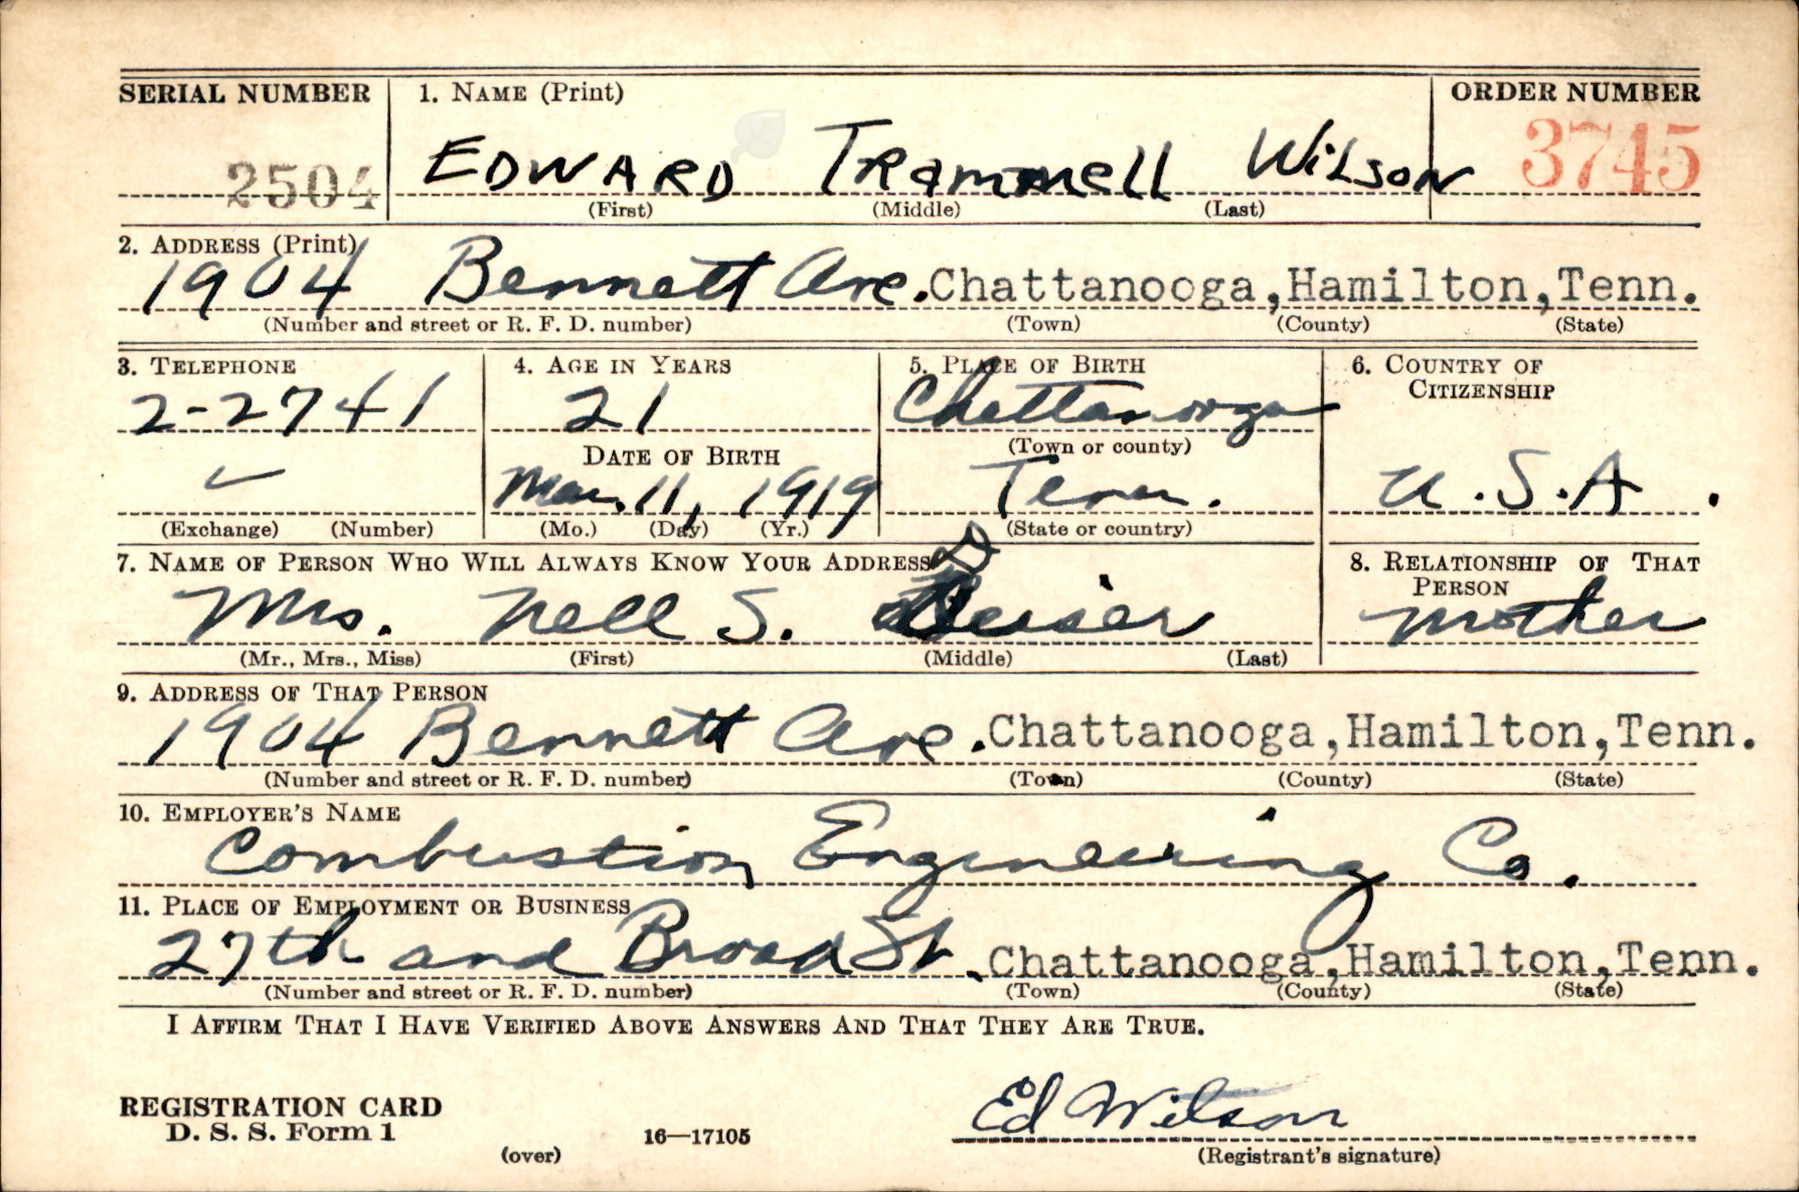 SERIAL NUMBER 1. NAME (Print) ORDER NUMBER
2504 EDWARD TRammell WiLSON 3745
(First) (Middle) (Last)
2. ADDRESS (Print)
1904 Bennett Ave. Chattanooga, Hamilton, Tenn.
(Number and street or R. F. D. number) (Town) (County) (State)
3. TELEPHONE 4. AGE IN YEARS 5. PLACE OF BIRTH 6. COUNTRY OF
CITIZENSHIP
2-2741 21 Chattanooga
DATE OF BIRTH (Town or county)
Mar. 11, 1919 Tenn. U.S.A.
(Exchange) (Number) (Mo.) (Day) (Yr.) (State or country)
7. NAME OF PERSON WHO WILL ALWAYS KNOW YOUR ADDRESS 8. RELATIONSHIP OF THAT
PERSON
Mrs. Nell S. mother
(Mr., Mrs., Miss) (First) (Middle) (Last)
9. ADDRESS OF THAT PERSON
1904 Bennett Ave. Chattanooga, Hamilton, Tenn.
(Number and street or R. F. D. number) (Town) (County) (State)
10. EMPLOYER'S NAME
Combustion Engineering Co.
11. PLACE OF EMPLOYMENT OR BUSINESS
27th and Broad St. Chattanooga, Hamilton, Tenn.
(Number and street or R. F. D. number) (Town) (County) (State)
I AFFIRM THAT I HAVE VERIFIED ABOVE ANSWERS AND THAT THEY ARE TRUE.
REGISTRATION CARD
D. S. S. Form 1 16—17105 Ed Wilson
(over) (Registrant's signature)